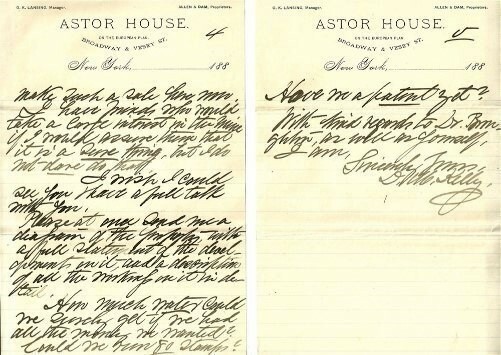 G. K. LANSING, Manager. ALLEN & DAM, Proprietors.
ASTOR HOUSE.
4
ON THE EUROPEAN PLAN.
BROADWAY & VESEY ST.
New York, 188
make such a sale for now
I have friends who would
take a large interest in the
if I would assure them that
it is a sure thing, but I do
not dare do that
I wish I could
see you & have a full talk
with you.
Please at once send me a
diagram of the property with
a full statement of the devel-
opments on it and a description
of all the workings on it in de-
tail.
How much water could
we surely get if we had
all the money we wanted?
Could we run 80 stamps?
G. K. LANSING, Manager. ALLEN & DAM, Proprietors.
ASTOR HOUSE.
V
ON THE EUROPEAN PLAN.
BROADWAY & VESEY ST.
New York, 188
Have we a patent yet?
With kind regards to Dr.
as well as yourself,
I am,
Sincerely Yours,
Kelly